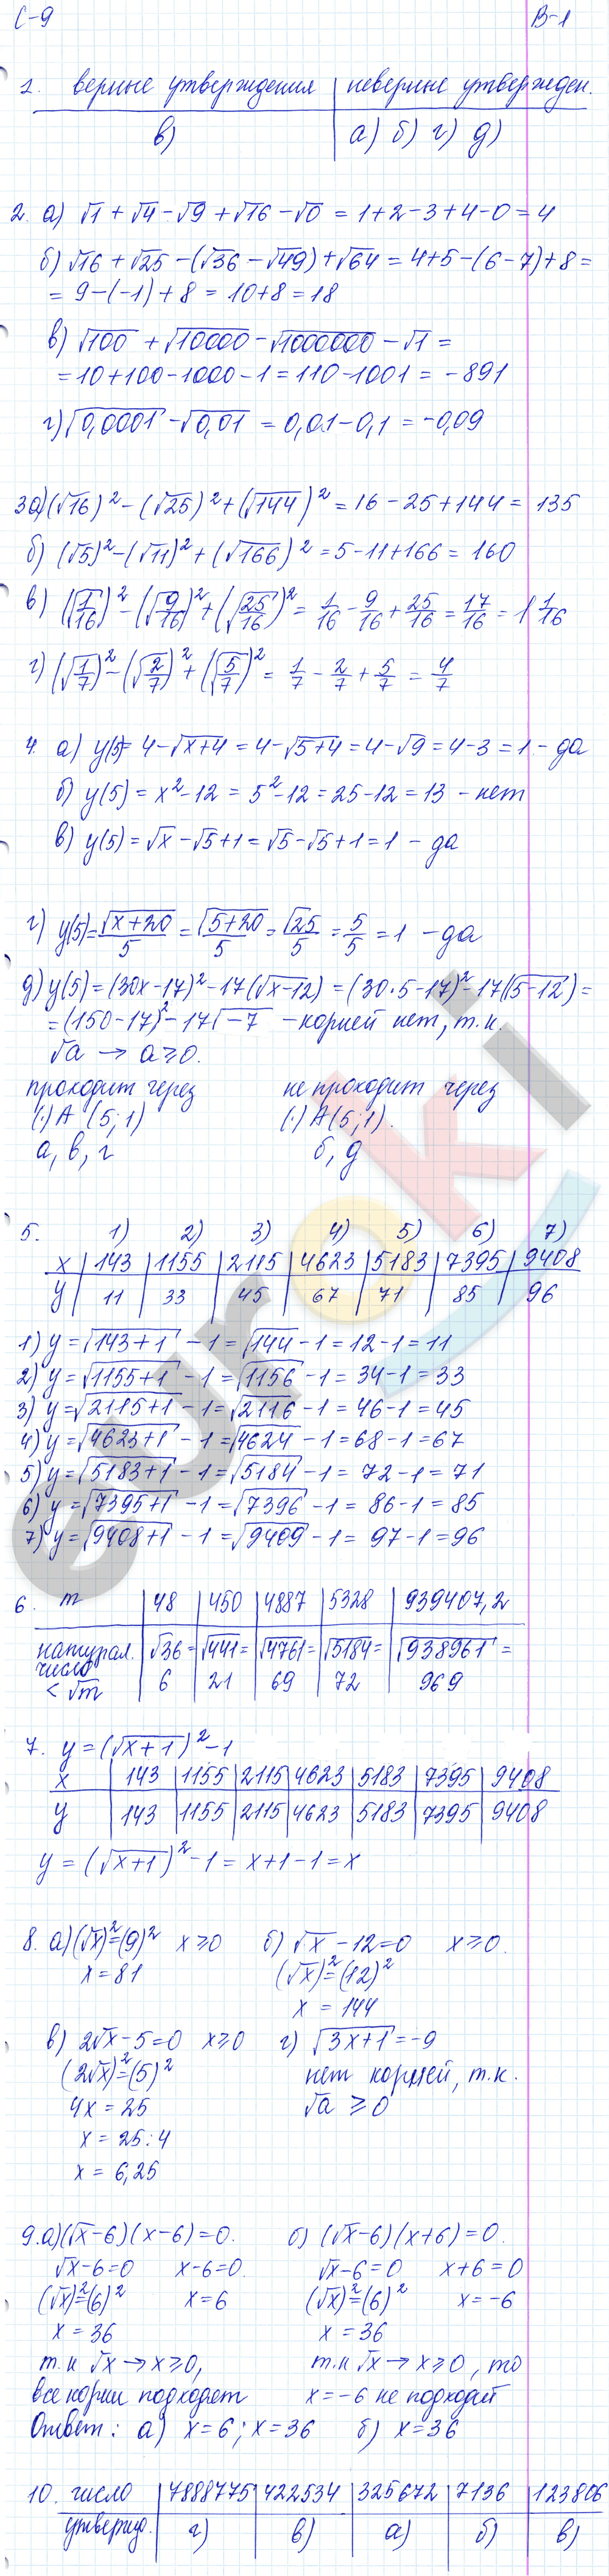 С-9 В-1
1. верные утверждения | неверные утвержден.
в) | а) б) г) д)
2. а) √1 + √4 - √9 + √16 - √0 = 1+2-3+4-0=4
б) √16 + √25 - (√36 - √49) + √64 = 4+5-(6-7)+8=
= 9-(-1)+8 = 10+8=18
в) √100 + √10000 - √1000000 - √1 =
=10+100-1000-1=110-1001= -891
г) √0,0001 - √0,01 = 0,01-0,1=-0,09
3а) (√16)² - (√25)² + (√144)² = 16-25+144= 135
б) (√5)² - (√11)² + (√166)² = 5-11+166= 160
в) (√1/16)² - (√9/16)² + (√25/16)² = 1/16 - 9/16 + 25/16 = 17/16 = 1 1/16
г) (√1/7)² - (√2/7)² + (√5/7)² = 1/7 - 2/7 + 5/7 = 4/7
4. а) y(5)= 4-√x+4 = 4-√5+4 = 4-√9=4-3=1 - да
б) y(5) = x²-12 = 5²-12=25-12=13 - нет
в) y(5) = √x - √5+1 = √5-√5+1=1 - да
г) y(5)= √x+20/5 = √5+20/5 = √25/5 = 5/5 = 1 - да
д) y(5) = (30x-17)² - 17(√x-12) = (30·5-17)² - 17(√5-12) =
= (150-17)² - 17√-7 - корней нет, т.к.
√a → a⩾0.
проходит через не проходит через
(·) A (5;1) (·) A(5;1).
а, в, г б, д
5. 1) 2) 3) 4) 5) 6) 7)
x | 143 | 1155 | 2115 | 4623 | 5183 | 7395 | 9408
y | 11 | 33 | 45 | 67 | 71 | 85 | 96
1) y = √143+1 - 1 = √144 - 1 = 12-1=11
2) y = √1155+1 - 1 = √1156 - 1 = 34-1=33
3) y = √2115+1 - 1 = √2116 - 1 = 46-1=45
4) y = √4623+1 - 1 = √4624 - 1 = 68-1=67
5) y = √5183+1 - 1 = √5184 - 1 = 72-1=71
6) y = √7395+1 - 1 = √7396 - 1 = 86-1=85
7) y = √9408+1 - 1 = √9409 - 1 = 97-1=96
6. m | 48 | 450 | 4887 | 5328 | 939407,2
натурал. | √36= | √441= | √4761= | √5184= | √938961 =
число | 6 | 21 | 69 | 72 | 969
< √m
7. y = (√x+1)² - 1
x | 143 | 1155 | 2115 | 4623 | 5183 | 7395 | 9408
y | 143 | 1155 | 2115 | 4623 | 5183 | 7395 | 9408
y = (√x+1)² - 1 = x+1-1=x
8. а) (√x)²=(9)² x⩾0 б) √x - 12=0 x⩾0.
x=81 (√x)²=(12)²
x = 144
в) 2√x - 5=0 x⩾0 г) √3x+1 = -9
(2√x)²=(5)² нет корней, т.к.
4x = 25 √a ⩾ 0
x = 25:4
x = 6,25
9. а) (√x-6)(x-6)=0. б) (√x-6)(x+6)=0.
√x-6=0 x-6=0. √x-6=0 x+6=0
(√x)²=(6)² x=6 (√x)²=(6)² x=-6
x = 36 x = 36
т.к √x → x⩾0, т.к √x → x⩾0, то
все корни подходят x=-6 не подходит
Ответ: а) x=6; x=36 б) x=36
10. число | 7888775 | 422534 | 325672 | 7136 | 123806
утвержд. | г) | в) | а) | б) | в)
euroki